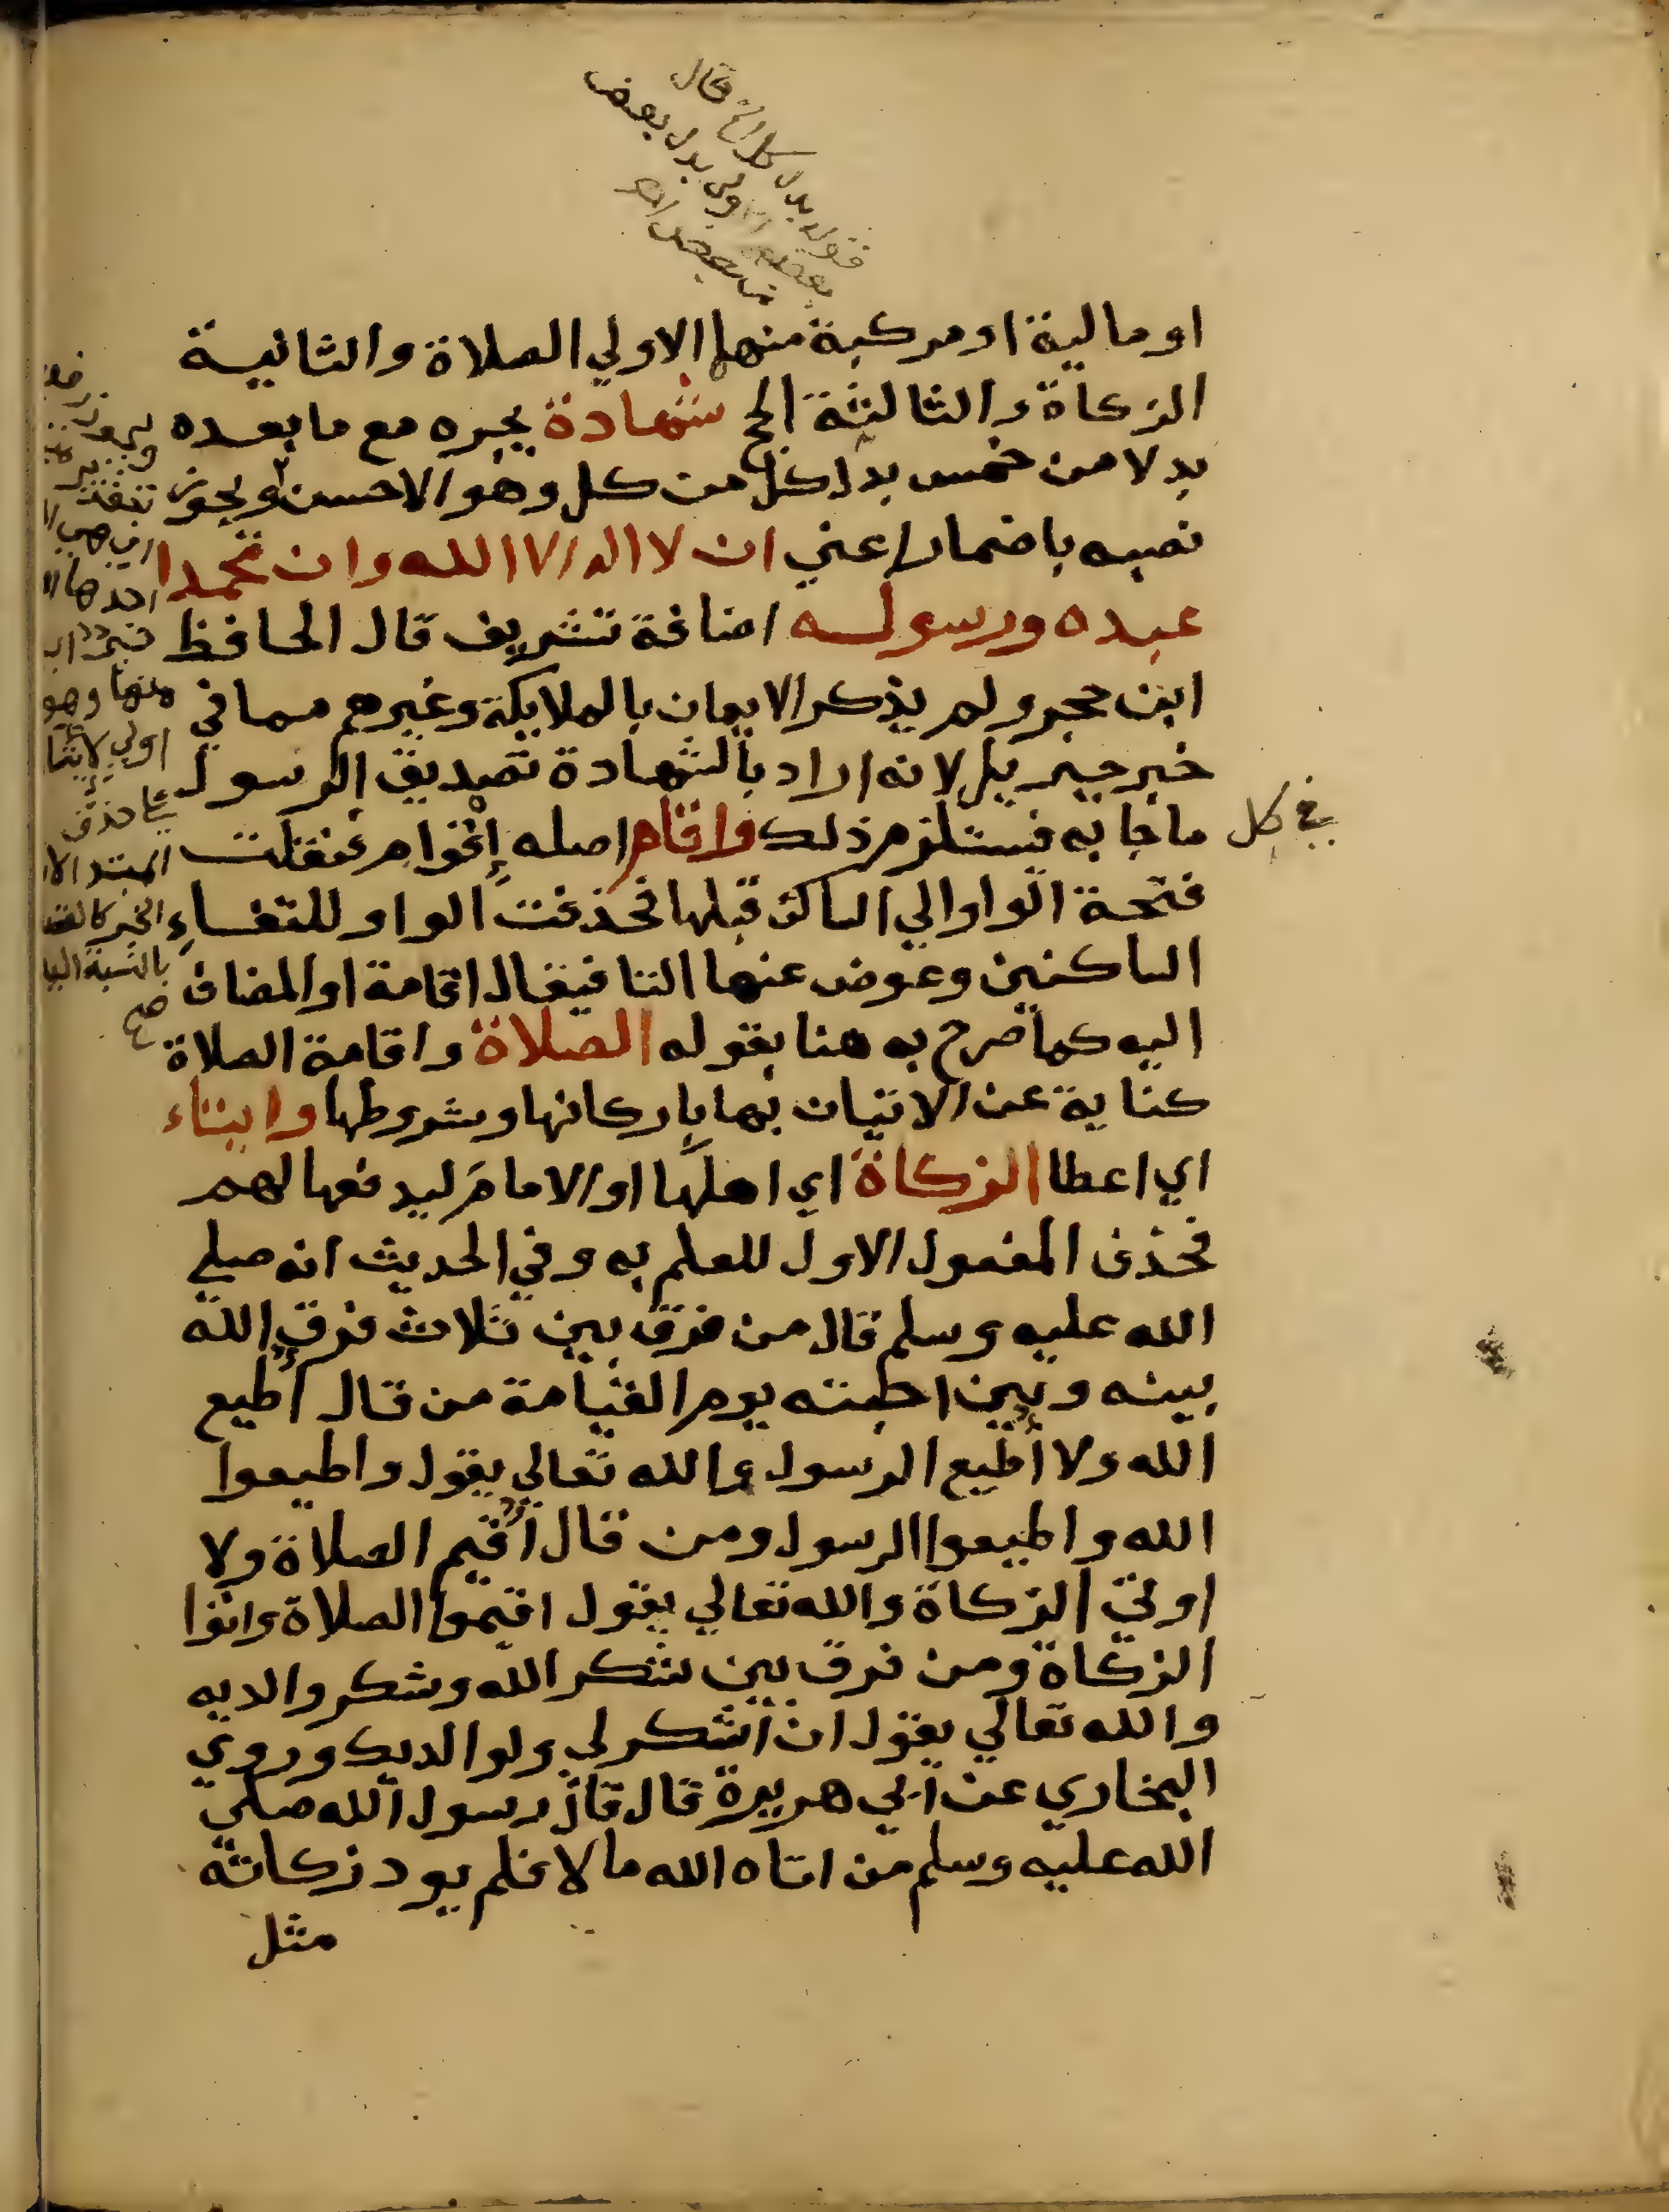 فقوله بدل كل الخ قال
بعضهم الاولى بدل بعض
من بعض اهـ
او مالية او مركبة منهما الاولي الصلاة والثانية
الزكاة والثالثة الحج شهادة بجره مع ما بعده
بدلا من خمس بدل كل من كل وهو الاحسن ويجوز
نصبه باضمار اعني ان لا اله الا الله وان محمدا
عبده ورسوله اضافة تشريف قال الحافظ
ابن حجر ولم يذكر الايمان بالملايكة وغيرهم مما في
خبر جبريل لانه اراد بالشهادة تصديق الرسول
ما جا به فيستلزم ذلك واقام اصله إقوام فنقلت
فتحة الواو الي الساكن قبلها فحذفت الواو للتقاء
الساكنين وعوض عنها التا فيقال اقامة او المضاف
اليه كما صرح به هنا بقوله الصلاة واقامة الصلاة
كناية عن الاتيان بها باركانها وشروطها وايتاء
اي اعطا الزكاة اي اهلها او الامام ليدفعها لهم
فحذف المفعول الاول للعلم به وفي الحديث انه صلي
الله عليه وسلم قال من فرق بين ثلاث فرق الله
بينه وبين احبته يوم القيامة من قال أطيع
الله ولا أطيع الرسول والله تعالي يقول واطيعوا
الله واطيعوا الرسول ومن قال أقيم الصلاة ولا
اوتي الزكاة والله تعالي يقول اقيموا الصلاة واتوا
الزكاة ومن فرق بين شكر الله وشكر والديه
والله تعالي يقول ان اشكر لي ولوالديك وروي
البخاري عن ابي هريرة قال قال رسول الله صلي
الله عليه وسلم من اتاه الله مالا فلم يود زكاته
مثل
في كل
ويجوز رفعه
بتقدير
اي هي او
احدها او
خبر اي
منها وهو
اولي لإيثار
حذف
المبتدا
الخبر كالفضلة
بالنسبة اليه
صح